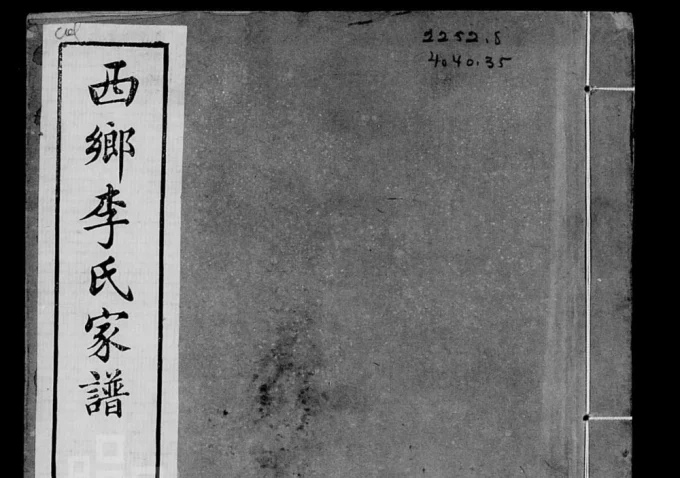 西鄉李氏家譜
2252.8
4040.35